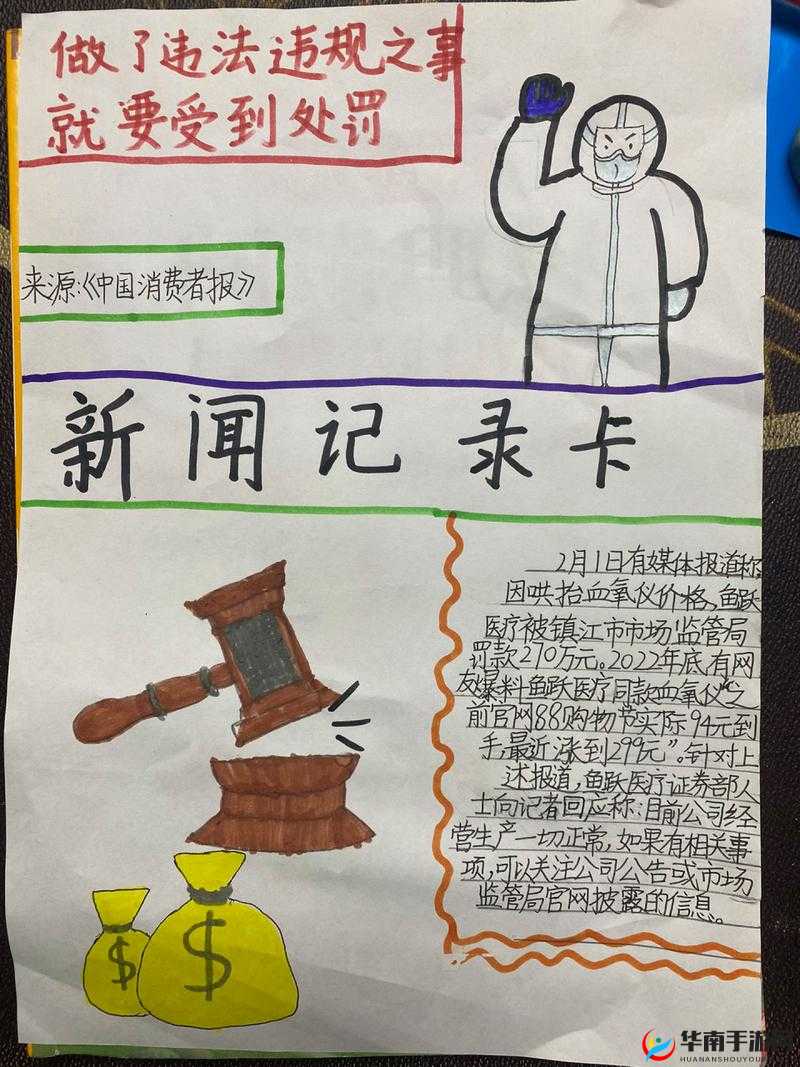 做了违法违规之事
就要受到处罚
来源:《中国消费者报》
新闻记录卡
2月1日有媒体报道称,
因哄抬血氧仪价格,鱼跃
医疗被镇江市市场监管局
罚款270万元。2022年底,有网
友爆料鱼跃医疗同款血氧仪“之
前官网88购物节实际94元到
手,最近涨到299元”。针对上
述报道,鱼跃医疗证券部人
士向记者回应称:目前公司经
营生产一切正常,如果有相关事
项,可以关注公司公告或市场
监管局官网披露的信息。
$
$
华南手游
HUANANSHOUYOU